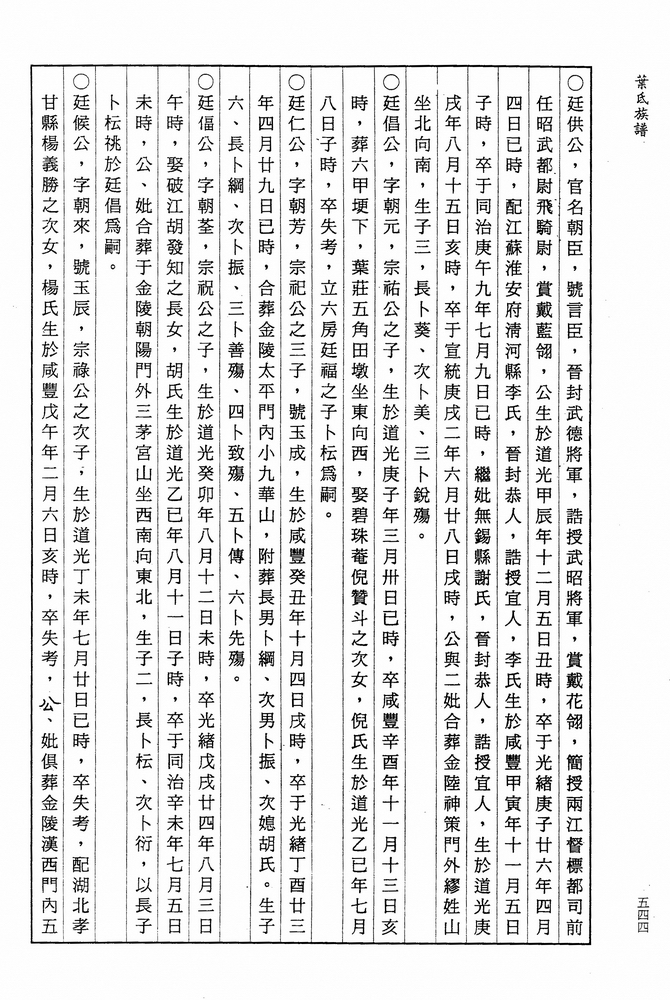 葉氏族譜
〇廷供公，官名朝臣，號言臣，晉封武德將軍，誥授武昭將軍，賞戴花翎，簡授兩江督標都司前
任昭武都尉飛騎尉，賞戴藍翎，公生於道光甲辰年十二月五日丑時，卒于光緒庚子廿六年四月
四日巳時，配江蘇淮安府清河縣李氏，晉封恭人，誥授宜人，李氏生於咸豐甲寅年十一月五日
子時，卒于同治庚午九年七月九日巳時，繼妣無錫縣謝氏，晉封恭人，誥授宜人，生於道光庚
戌年八月十五日亥時，卒于宣統庚戌二年六月廿八日戌時，公與二妣合葬金陸神策門外繆姓山
坐北向南，生子三，長卜葵、次卜美、三卜銳殤。
〇廷倡公，字朝元，宗祐公之子，生於道光庚子年三月卅日巳時，卒咸豐辛酉年十一月十三日亥
時，葬六甲埂下，葉莊五角田墩坐東向西，娶碧珠菴倪贊斗之次女，倪氏生於道光乙巳年七月
八日子時，卒失考，立六房廷福之子卜枟爲嗣。
〇廷仁公，字朝芳，宗祀公之三子，號玉成，生於咸豐癸丑年十月四日戌時，卒于光緒丁酉廿三
年四月廿九日巳時，合葬金陵太平門內小九華山，附葬長男卜綱、次男卜振、次媳胡氏。生子
六、長卜綱、次卜振、三卜善殤、四卜致殤、五卜傳、六卜先殤。
〇廷偪公，字朝荃，宗祝公之子，生於道光癸卯年八月十二日未時，卒光緒戊戌廿四年八月三日
午時，娶破江胡發知之長女，胡氏生於道光乙巳年八月十一日子時，卒于同治辛未年七月五日
未時，公、妣合葬于金陵朝陽門外三茅宮山坐西南向東北，生子二，長卜枟、次卜衍，以長子
卜枟祧於廷倡爲嗣。
〇廷候公，字朝來，號玉辰，宗祿公之次子，生於道光丁未年七月廿日巳時，卒失考，配湖北孝
甘縣楊義勝之次女，楊氏生於咸豐戊午年二月六日亥時，卒失考，公、妣俱葬金陵漢西門內五
五四四